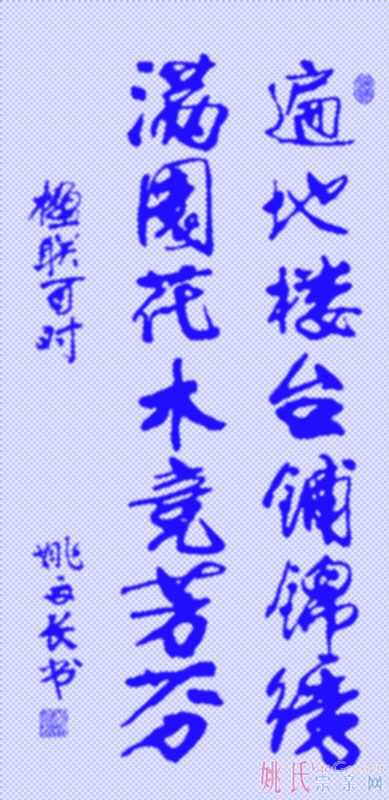 遍地楼台铺锦绣
满园花木竞芳芬
楹联可对
姚文长书
姚氏宗亲网